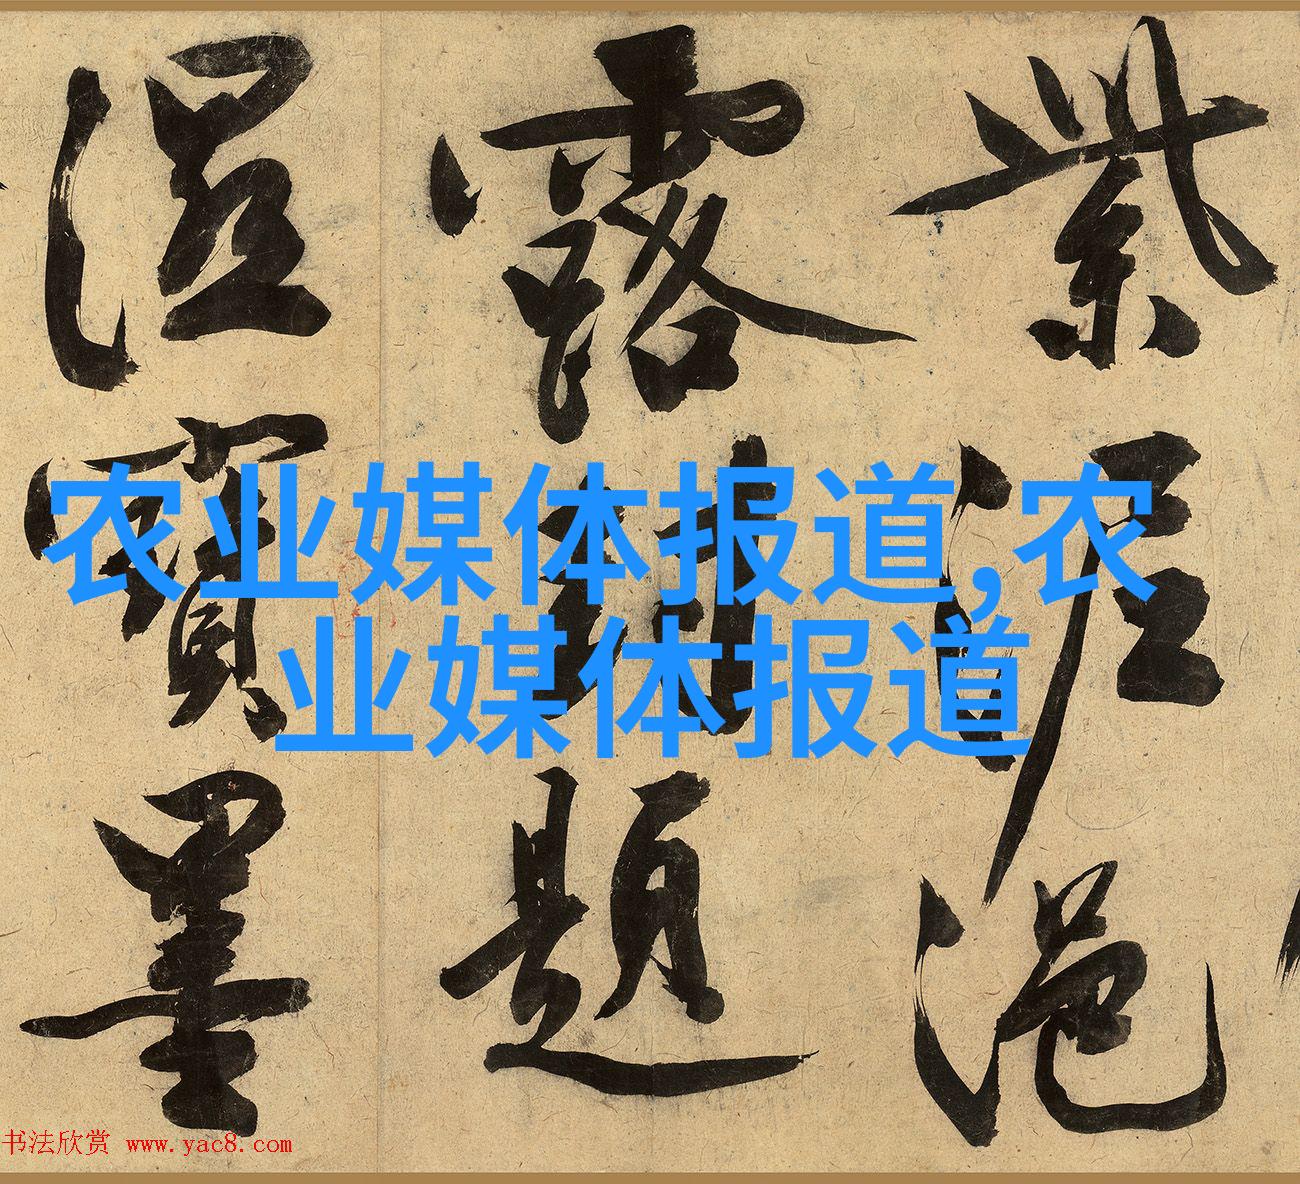 紫泥浥
露封題
溼寶墨
农业媒体报道,农
业媒体报道
书法欣赏 www.yac8.com